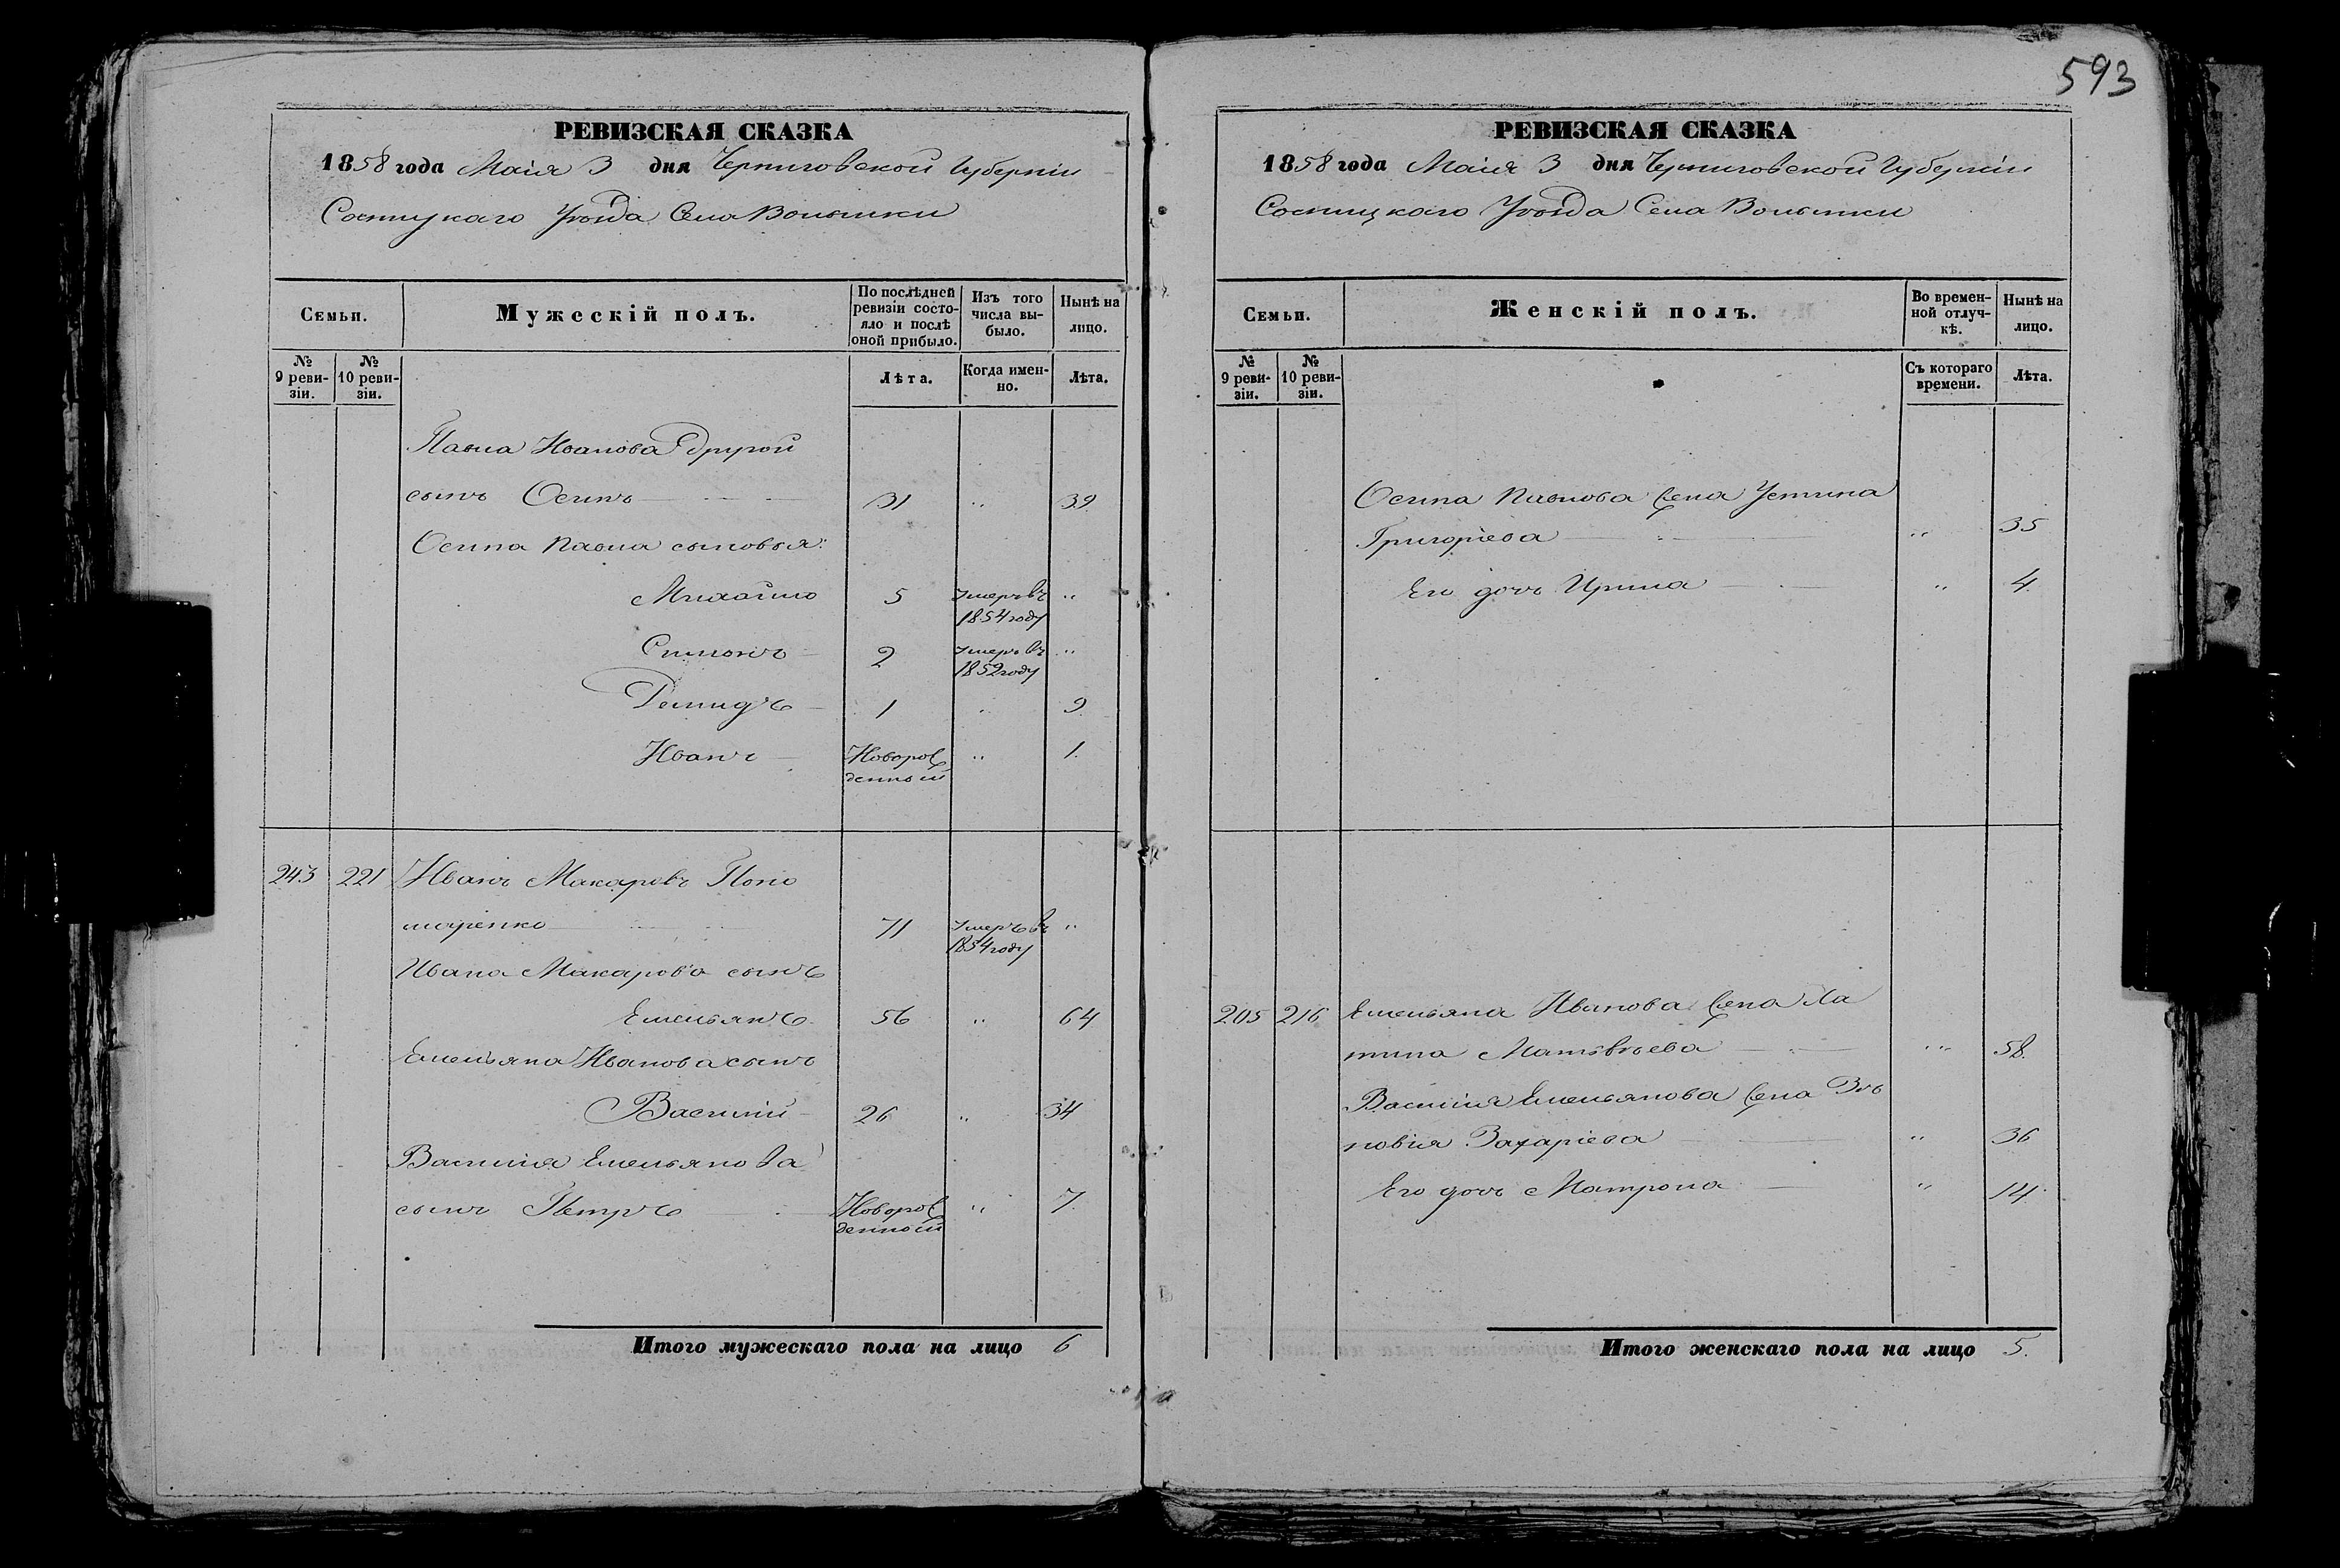 593
РЕВИЗСКАЯ СКАЗКА
1858 года Маія 3 дня Черниговской Губерніи
Сосницкаго Уѣзда Села Волынки
Семьи.
Мужескій полъ.
По послѣдней ревизіи состояло и послѣ оной прибыло.
Изъ того числа выбыло.
Нынѣ на лицо.
№ 9 ревизіи.
№ 10 ревизіи.
Лѣта.
Когда именно.
Лѣта.
Павла Иванова другой
сынъ Осипъ 31 " 39
Осипа Павла сыновья:
Михайло 5 умеръ въ 1854 году "
Симонъ 2 умеръ въ 1852 году "
Демидъ 1 " 9
Иванъ Новорожденный " 1
243 221 Иванъ Макаровъ Поно
маренко 71 умеръ въ 1854 году "
Ивана Макарова сынъ
Емельянъ 56 " 64
Емельяна Иванова сынъ
Василій 26 " 34
Василія Емельянова
сынъ Петръ Новорожденный " 7
Итого мужескаго пола на лицо 6
РЕВИЗСКАЯ СКАЗКА
1858 года Маія 3 дня Черниговской Губерніи
Сосницкого Уѣзда Села Волынки
Семьи.
Женскій полъ.
Во временной отлучкѣ.
Нынѣ на лицо.
№ 9 ревизіи.
№ 10 ревизіи.
Съ котораго времени.
Лѣта.
Осипа Павлова жена Устина
Григоріева " 35
Его дочь Ирина " 4
205 216 Емельяна Иванова жена Ха
тина Матвѣева " 58
Василія Емельянова жена Зѣ
новія Захаріева " 36
Его дочь Матрона " 14
Итого женскаго пола на лицо 5.